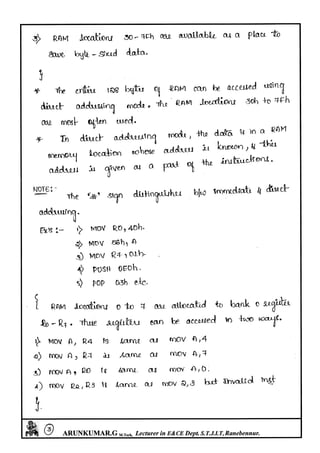 3) RAM locations 30-7Fh are available as a place to
save byte-sized data.
}
* The entire 128 bytes of RAM can be accessed using
direct addressing mode. The RAM locations 30h to 7Fh
are most often used.
* In direct addressing mode, the data is in a RAM
memory location whose address is known, & this
address is given as a part of the instructions.
NOTE:- The "#" sign distinguishes b/w immediate & direct
addressing.
Exs:- 1) MOV R0, 40h.
2) MOV 56h, A
3) MOV R4, 02h.
4) PUSH 0E0h.
5) POP 03h etc.
{ RAM locations 0 to 7 are allocated to bank 0 register
R0-R7. These registers can be accessed in two ways.
1) MOV A, R4 is same as MOV A,4
2) MOV A, R7 is same as MOV A,7
3) MOV A, R0 is same as MOV A,0.
4) MOV R2, R3 is same as MOV 2,3 but Invalid Inst
}.
3 ARUNKUMAR.G M.Tech, Lecturer in E&CE Dept. S.T.J.I.T, Ranebennur.